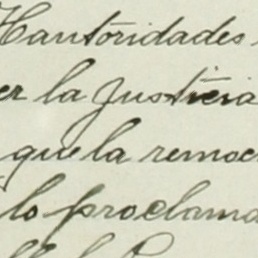 autoridades
er la Justicia
que la remoc
lo proclama